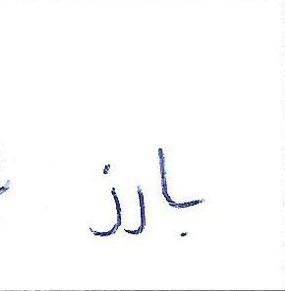 بارز